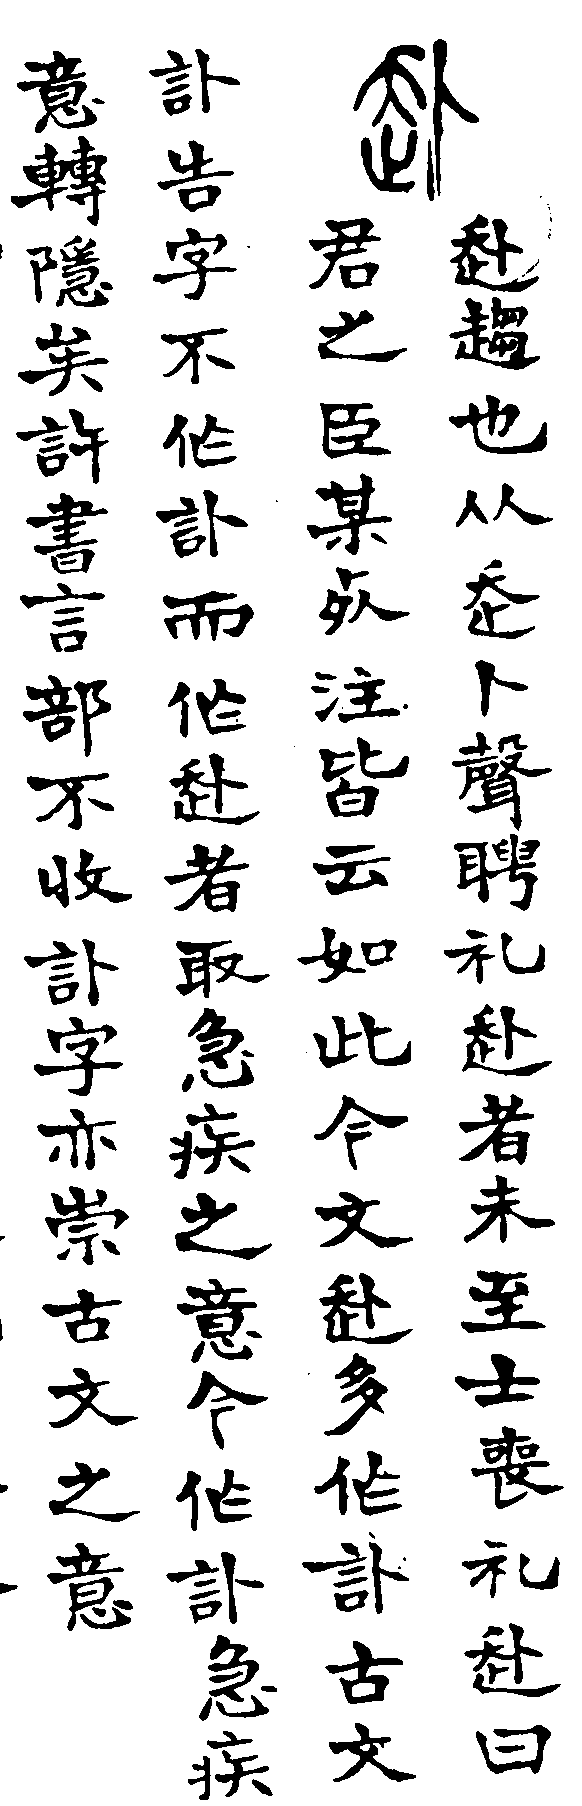 赴
赴趨也从走卜聲聘礼赴者未至士喪礼赴曰
君之臣某死注皆云如此今文赴多作訃古文
訃告字不作訃而作赴者取急疾之意今作訃急疾
意轉隱矣許書言部不收訃字亦崇古文之意